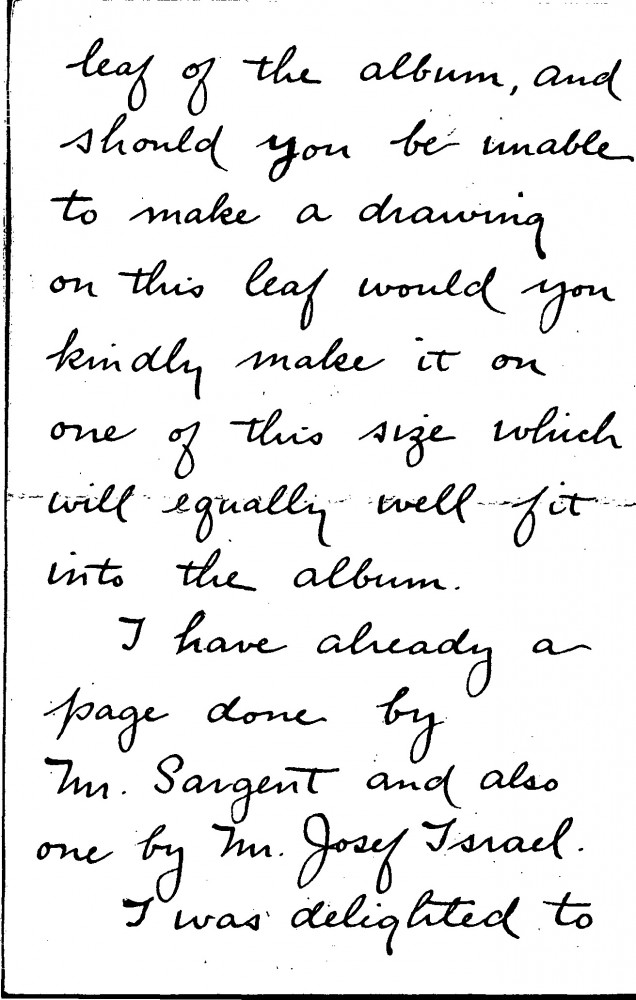 leaf of the album, and
should you be unable
to make a drawing
on this leaf would you
kindly make it on
one of this size which
will equally well fit
into the album.
I have already a
page done by
Mr. Sargent and also
one by Mr. Josef Israel.
I was delighted to